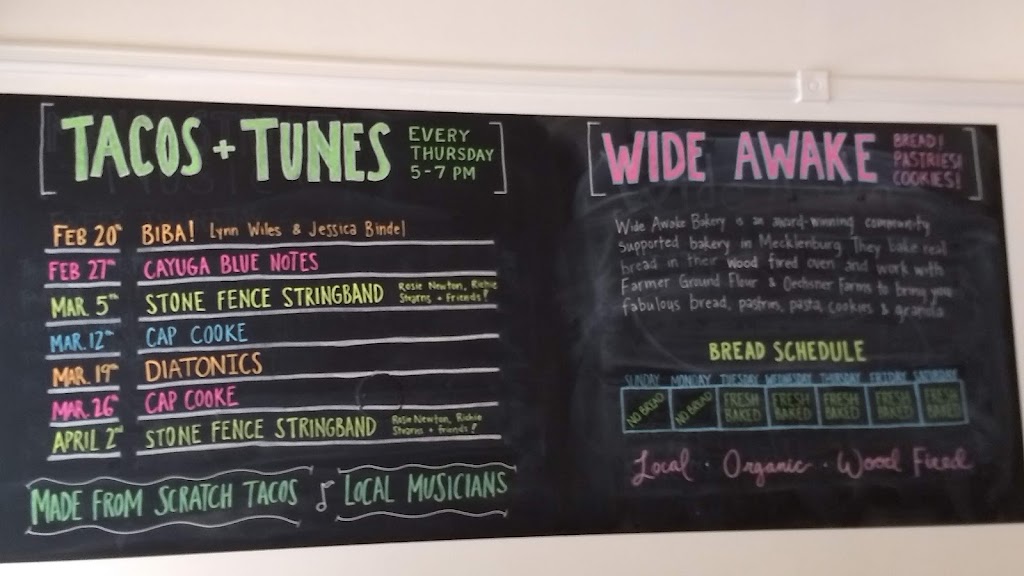 TACOS + TUNES
EVERY
THURSDAY
5-7 PM
FEB 20th BIBA! Lynn Wiles & Jessica Bindel
FEB 27th CAYUGA BLUE NOTES
MAR. 5th STONE FENCE STRINGBAND Rosie Newton, Richie
Stearns + Friends!
MAR. 12th CAP COOKE
MAR. 19th DIATONICS
MAR. 26th CAP COOKE
APRIL 2nd STONE FENCE STRINGBAND Rosie Newton, Richie
Stearns + friends!
MADE FROM SCRATCH TACOS LOCAL MUSICIANS
WIDE AWAKE
BREAD!
PASTRIES!
COOKIES!
Wide Awake Bakery is an award-winning community
supported bakery in Mecklenburg. They bake real
bread in their wood fired oven and work with
Farmer Ground Flour & Oechsner Farms to bring you
fabulous bread, pastries, pasta, cookies & granola
BREAD SCHEDULE
SUNDAY MONDAY TUESDAY WEDNESDAY THURSDAY FRIDAY SATURDAY
NO BREAD NO BREAD FRESH BAKED FRESH BAKED FRESH BAKED FRESH BAKED FRESH BAKED
Local · Organic · Wood Fired